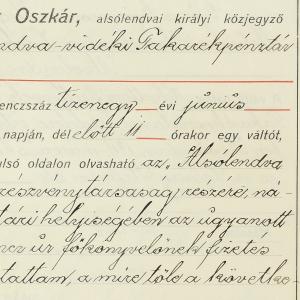 Oszkár, alsólendvai királyi közjegyző
ndva-vidéki Takarékpénztár
enczszáz tizenegy évi június
napján, dél előtt 11 órakor egy váltót,
ulsó oldalon olvasható az „Alsólendva
részvénytársaság részére, ná-
tári helyiségében az ugyanott
úr főkönyvelőnek fizetés
tattam, a mire tőle a követke-